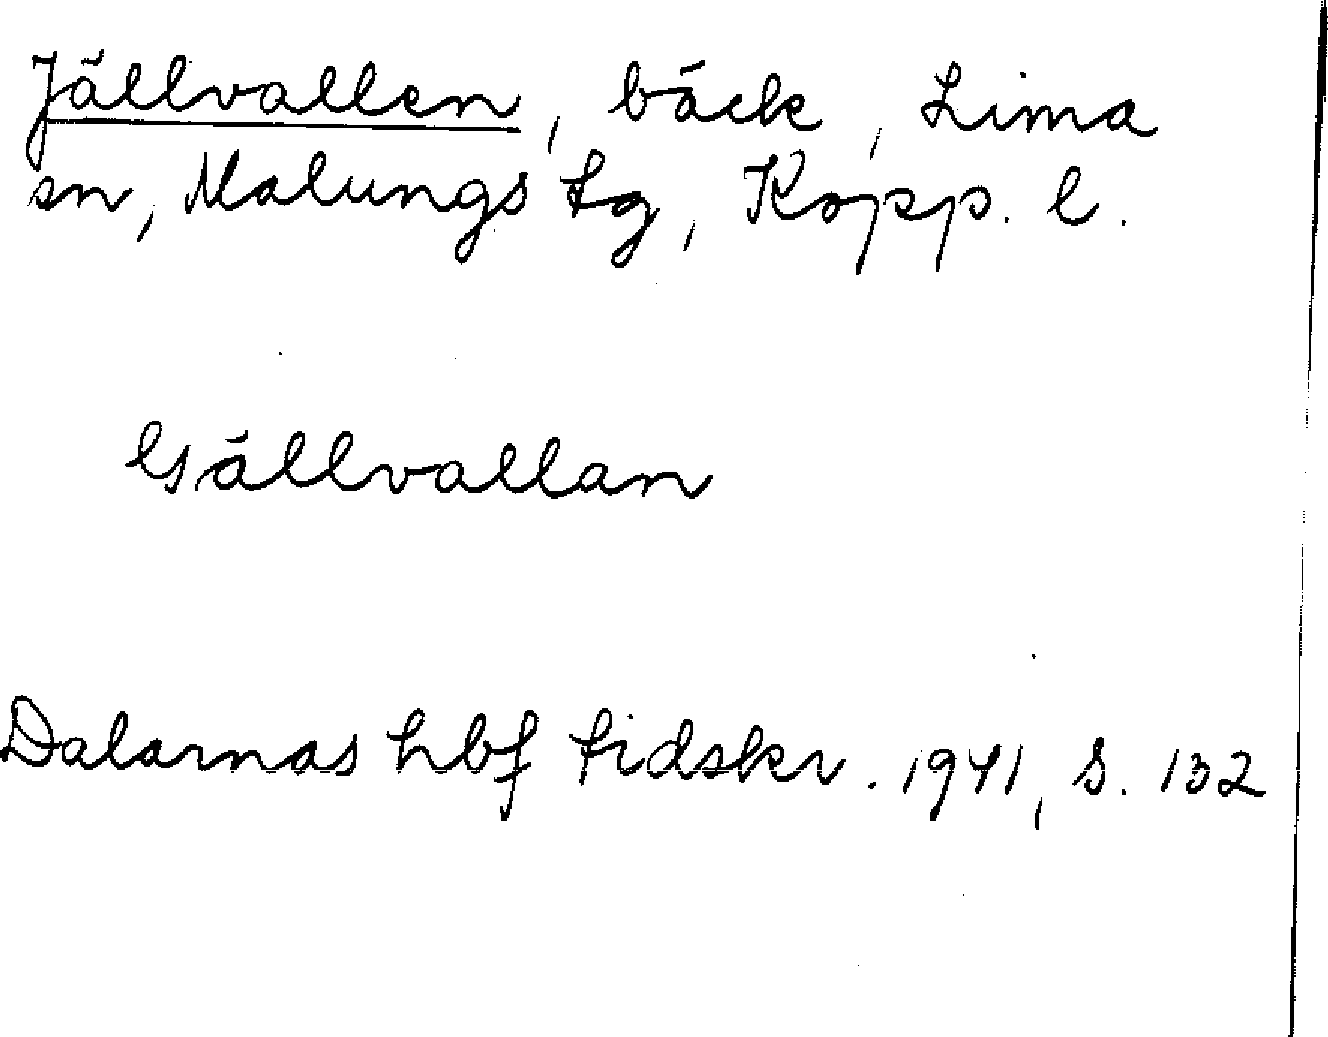 Jällvallen, bäck, Lima
sn, Malungs tg, Kopp. l.
Gällvallan
Dalarnas hbf tidskr. 1941, s. 132